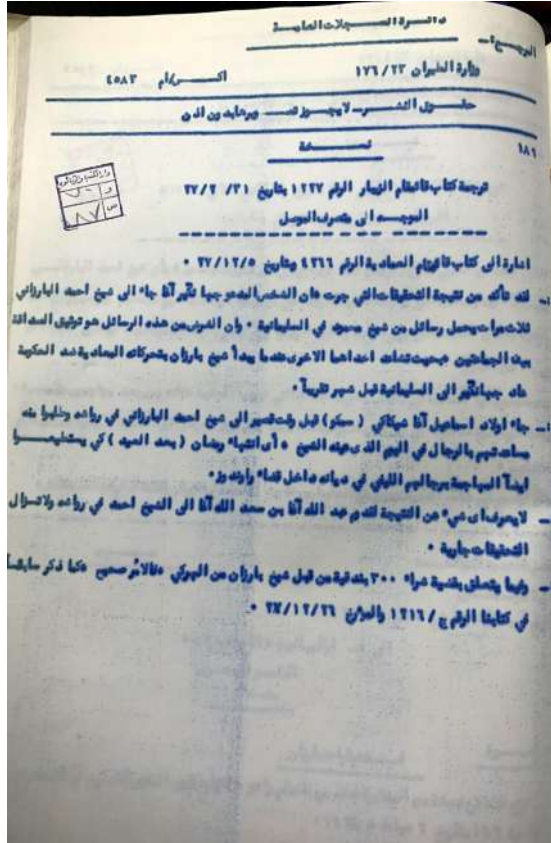 دائرة السجلات العامة
المرجع :ـ
وزارة الطيران ٢٣/ ١٧٦ اكس/ام ٤٥٨٣
حقوق النشر ـ لا يجوز نسخ وبرها بدون اذن
١٨٩
نسخة
ترجمة كتاب قائمقام الزيبار الرقم ١٢٢٧ بتاريخ ٣١/ ٢/ ٢٧
الموجه الى متصرف الموصل
اشارة الى كتاب قائمقام العمادية الرقم ٤٣٦٦ وبتاريخ ٢٧/١٢/٥ ٠
ـ لقد تأكد من نتيجة التحقيقات التي جرت بان الشخص المدعو جهانگير آغا جاء الى شيخ احمد البارزاني
ثلاث مرات يحمل رسائل من شيخ محمود في السليمانية ٠ وان الغرض من هذه الرسائل هو توثيق الصداقة
بين الجماعتين بحيث تساند احداهما الاخرى عندما يبدأ شيخ بارزان بتحركاته المعادية ضد الحكومة
عاد جهانگير الى السليمانية قبل شهر تقريباً ٠
ـ جاء اولاد اسماعيل آغا شيكاكي ( سمكو ) قبل وقت قصير الى شيخ احمد البارزاني في وطلبوا منه
مساعدتهم بالرجال في اليوم الذي عينه الشيخ ، أي انتهاء رمضان ( بعد العيد ) كي يستطيعوا
ايضاً المهاجمة برجالهم في ديانه داخل قضاء راوندوز ٠
ـ لا يعرف اي شيء عن النتيجة لقدوم عبد الله آغا بن سعد الله آغا الى الشيخ احمد في ولا تزال
التحقيقات جارية ٠
ـ وفيما يتعلق بقضية شراء ٣٠٠ بندقية من قبل شيخ بارزان من الهركي ، فالامر صحيح ، كما ذكر سابقاً
في كتابنا الرقم ج/ ١٢١٦ والمؤرخ ٢٧/١٢/٢٦ ٠